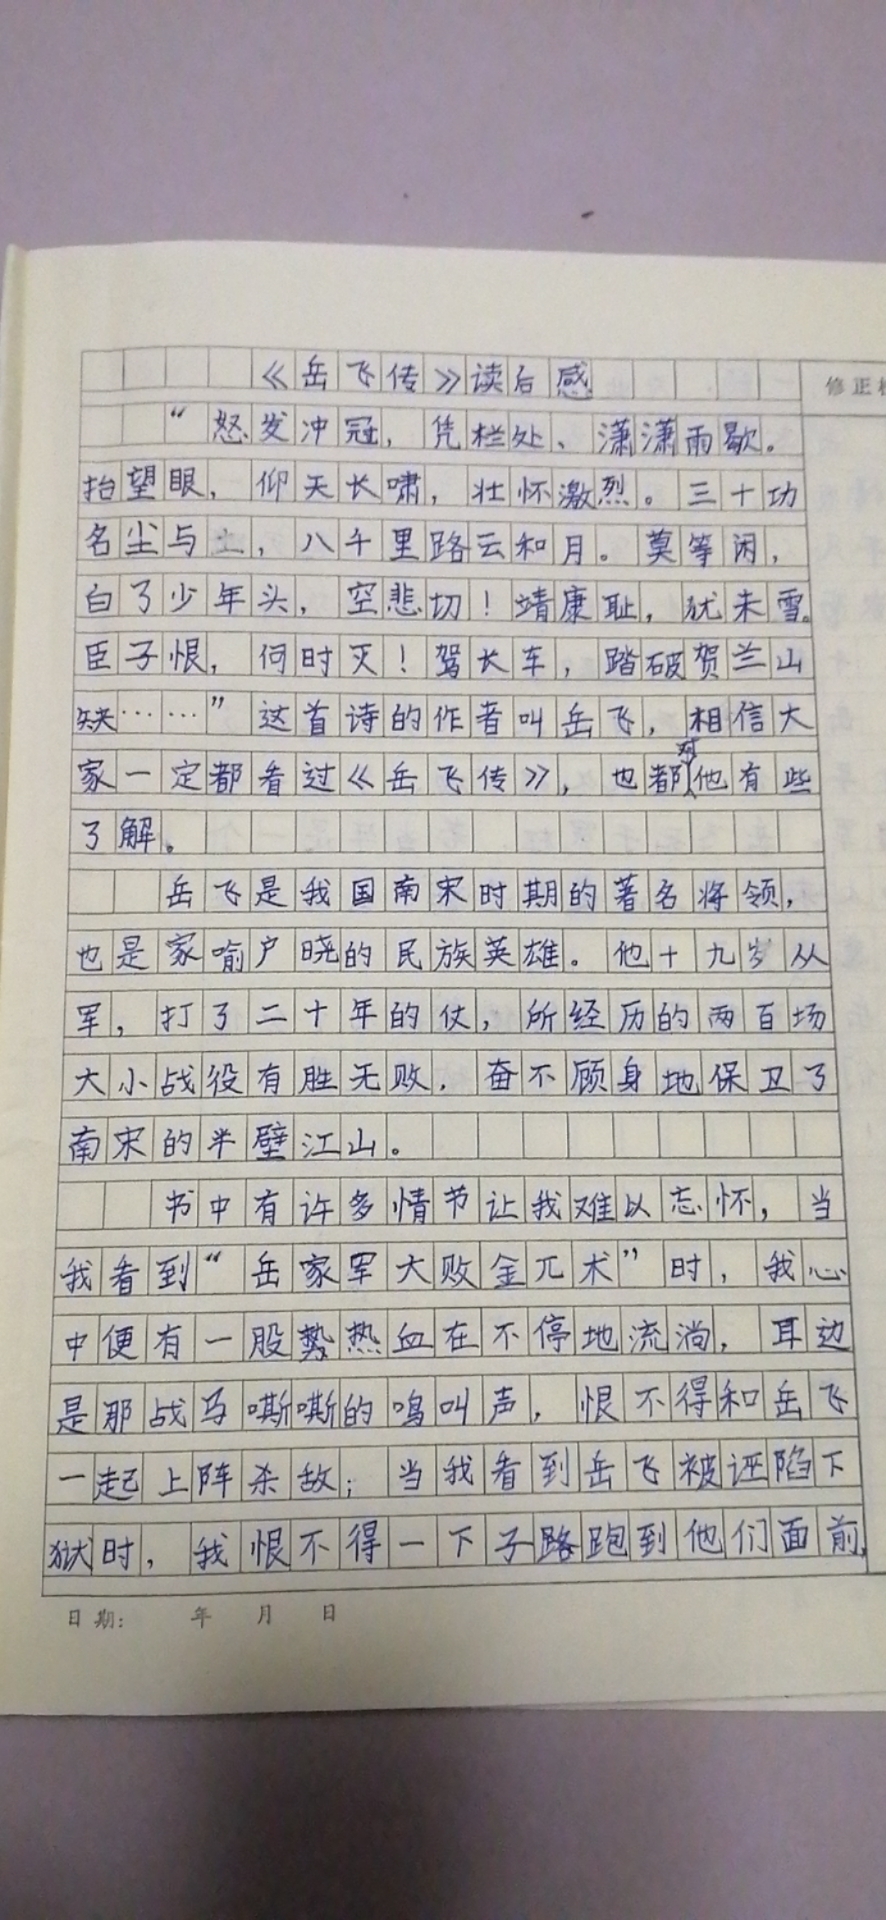 《岳飞传》读后感
修正
“怒发冲冠，凭栏处、潇潇雨歇。
抬望眼，仰天长啸，壮怀激烈。三十功
名尘与土，八千里路云和月。莫等闲，
白了少年头，空悲切！靖康耻，犹未雪。
臣子恨，何时灭！驾长车，踏破贺兰山
缺……”这首诗的作者叫岳飞，相信大
家一定都看过《岳飞传》，也都对他有些
了解。
岳飞是我国南宋时期的著名将领，
也是家喻户晓的民族英雄。他十九岁从
军，打了二十年的仗，所经历的两百场
大小战役有胜无败，奋不顾身地保卫了
南宋的半壁江山。
书中有许多情节让我难以忘怀，当
我看到“岳家军大败金兀术”时，我心
中便有一股势热血在不停地流淌，耳边
是那战马嘶嘶的鸣叫声，恨不得和岳飞
一起上阵杀敌；当我看到岳飞被诬陷下
狱时，我恨不得一下子路跑到他们面前，
日期： 年 月 日